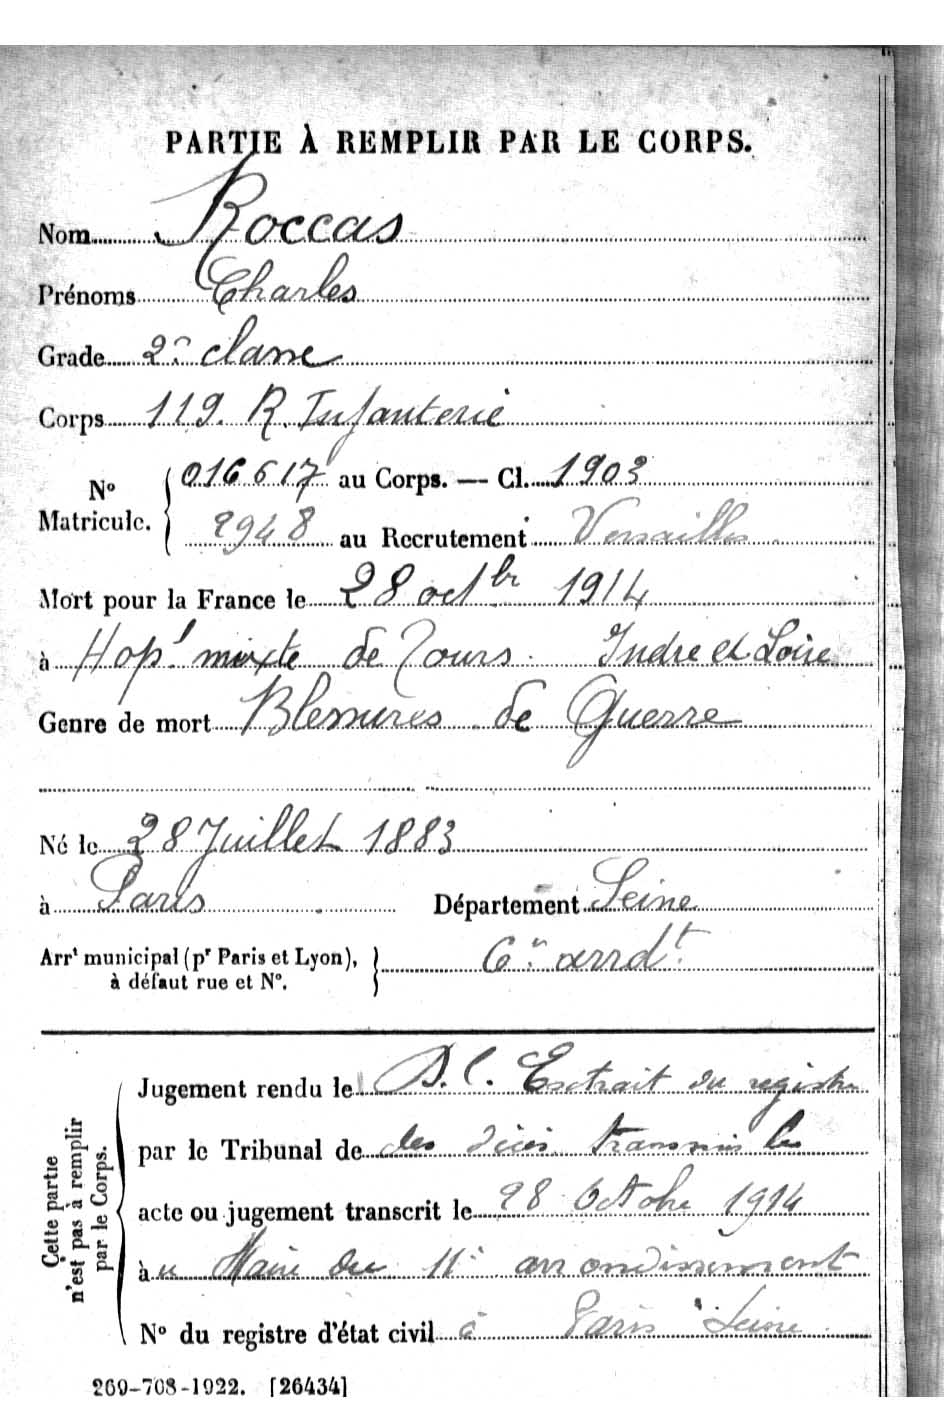 PARTIE À REMPLIR PAR LE CORPS.
Nom Roccas
Prénoms Charles
Grade 2e classe
Corps 119. R. Infanterie
No Matricule. { 016617 au Corps. — Cl. 1903
2948 au Recrutement Versailles
Mort pour la France le 28 octbr 1914
à Hopl mixte de Tours. Indre et Loire
Genre de mort Blessures de Guerre
Né le 28 Juillet 1883
à Paris Département Seine
Arrt municipal (pr Paris et Lyon), à défaut rue et No. } 6e arrdt.
Cette partie n'est pas à remplir par le Corps.
Jugement rendu le D.C. Extrait du registre
par le Tribunal de des décès transmis le
acte ou jugement transcrit le 28 Octobre 1914
àu Maire du 11e arrondissement
No du registre d'état civil à Paris Seine
269-708-1922. [26434]